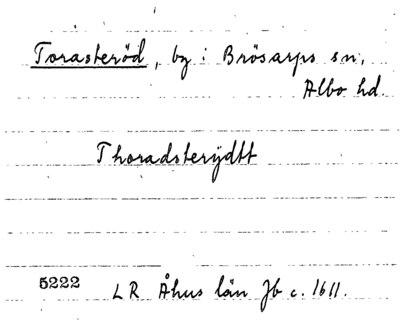 Torasteröd, by i Brösarps sn,
Albo hd.
Thoradsterÿdtt
5222 LR Åhus län Jb c. 1611.